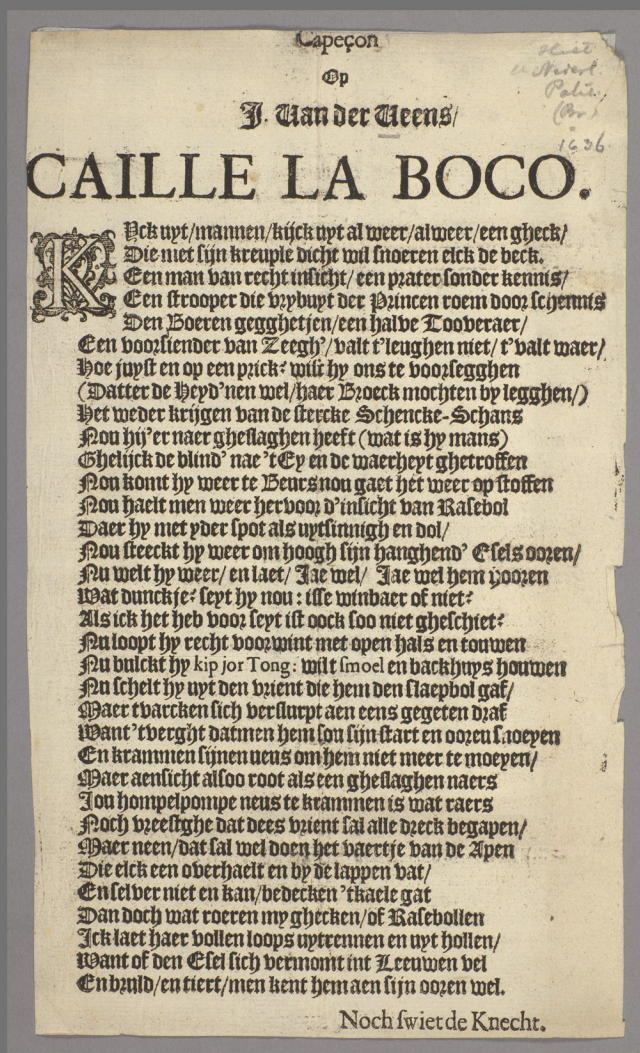 Capeçon
Op
J. Van der Veens/
CAILLE LA BOCO.
Hist
Nederl.
1636
KYck uyt/mannen/kijck uyt al weer/alweer/een gheck/
Die met sijn kreuple dicht wil snoeren elck de beck.
Een man van recht insicht/een prater sonder kennis/
Een strooper die vrybuyt der Princen roem door schennis
Den Boeren gegghetjen/een halve Tooveraer/
Een voorsiender van Zeegh'/valt t'leughen niet/t'valt waer/
Hoe juyst en op een prick? wist hy ons te voorsegghen
(Datter de Heyd'nen wel/haer Broeck mochten by legghen/)
Het weder krijgen van de stercke Schencke-Schans
Nou hij'er naer gheslaghen heeft (wat is hy mans)
Ghelijck de blind' nae 't Ey en de waerheyt ghetroffen
Nou komt hy weer te Beurs nou gaet het weer op stoffen
Nou haelt men weer hervoor d'insicht van Rasebol
Daer hy met yder spot als uytsinnigh en dol/
Nou steeckt hy weer om hoogh sijn hanghend' Esels ooren/
Nu welt hy weer/en laet/Jae wel/Jae wel hem hooren
Wat dunckje? seyt hy nou: isse winbaer of niet?
Als ick het heb voor seyt ist oock soo niet gheschiet?
Nu loopt hy recht voorwint met open hals en touwen
Nu bulckt hy kip jor Tong: wilt smoel en backhuys houwen
Nu schelt hy uyt den vrient die hem den slaepbol gaf/
Maer tvarcken sich verslurpt aen eens gegeten draf
Want 'tverght datmen hem sou sijn start en ooren snoeyen
En krammen sijnen neus om hem niet meer te moeyen/
Maer aensicht alsoo root als een gheslaghen naers
Jou hompelpompe neus te krammen is wat raers
Noch vreestghe dat dees vrient sal alle dreck begapen/
Maer neen/dat sal wel doen het vaertje van de Apen
Die elck een overhaelt en by de lappen vat/
En selver niet en kan/bedecken 'tkaele gat
Dan doch wat roeren my ghecken/of Rasebollen
Ick laet haer vollen loops uytrennen en uyt hollen/
Want of den Esel sich vermomt int Leeuwen vel
En bruld/en tiert/men kent hem aen sijn ooren wel.
Noch swiet de Knecht.